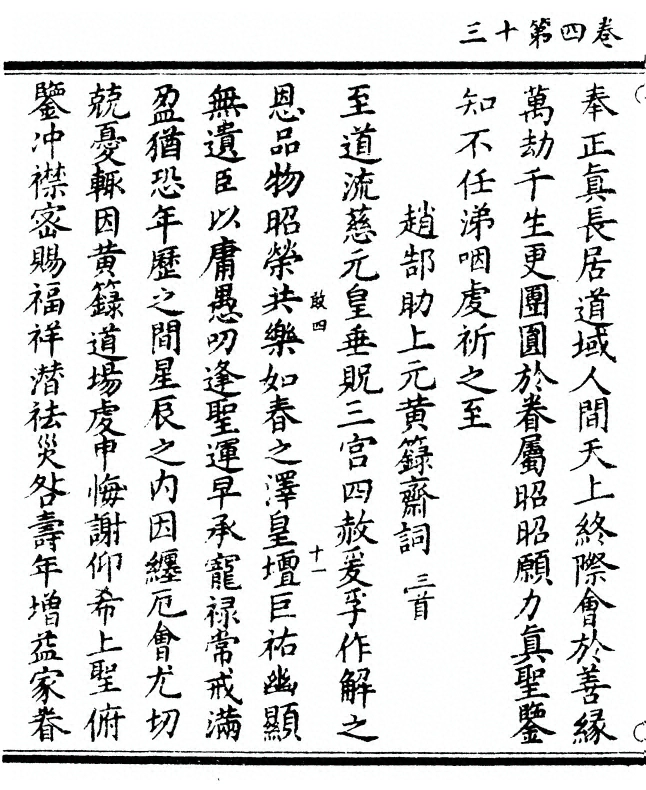 三十第四卷
奉正眞長居道域人間天上終際會於善緣
萬劫千生更團圓於眷屬昭昭願力眞聖鑒
知不任涕咽虔祈之至
趙郜助上元黃籙齋詞三首
至道流慈元皇垂貺三宮四赦爰孚作解之
敢四
十一
恩品物昭榮共樂如春之澤皇壇巨祐幽顯
無遺臣以庸愚叨逢聖運早承寵祿常戒滿
盈猶恐年歷之間星辰之內因纏厄會尤切
兢憂輒因黃籙道場虔申悔謝仰希上聖俯
鑒冲襟密賜福祥潛祛災咎壽年增益家眷